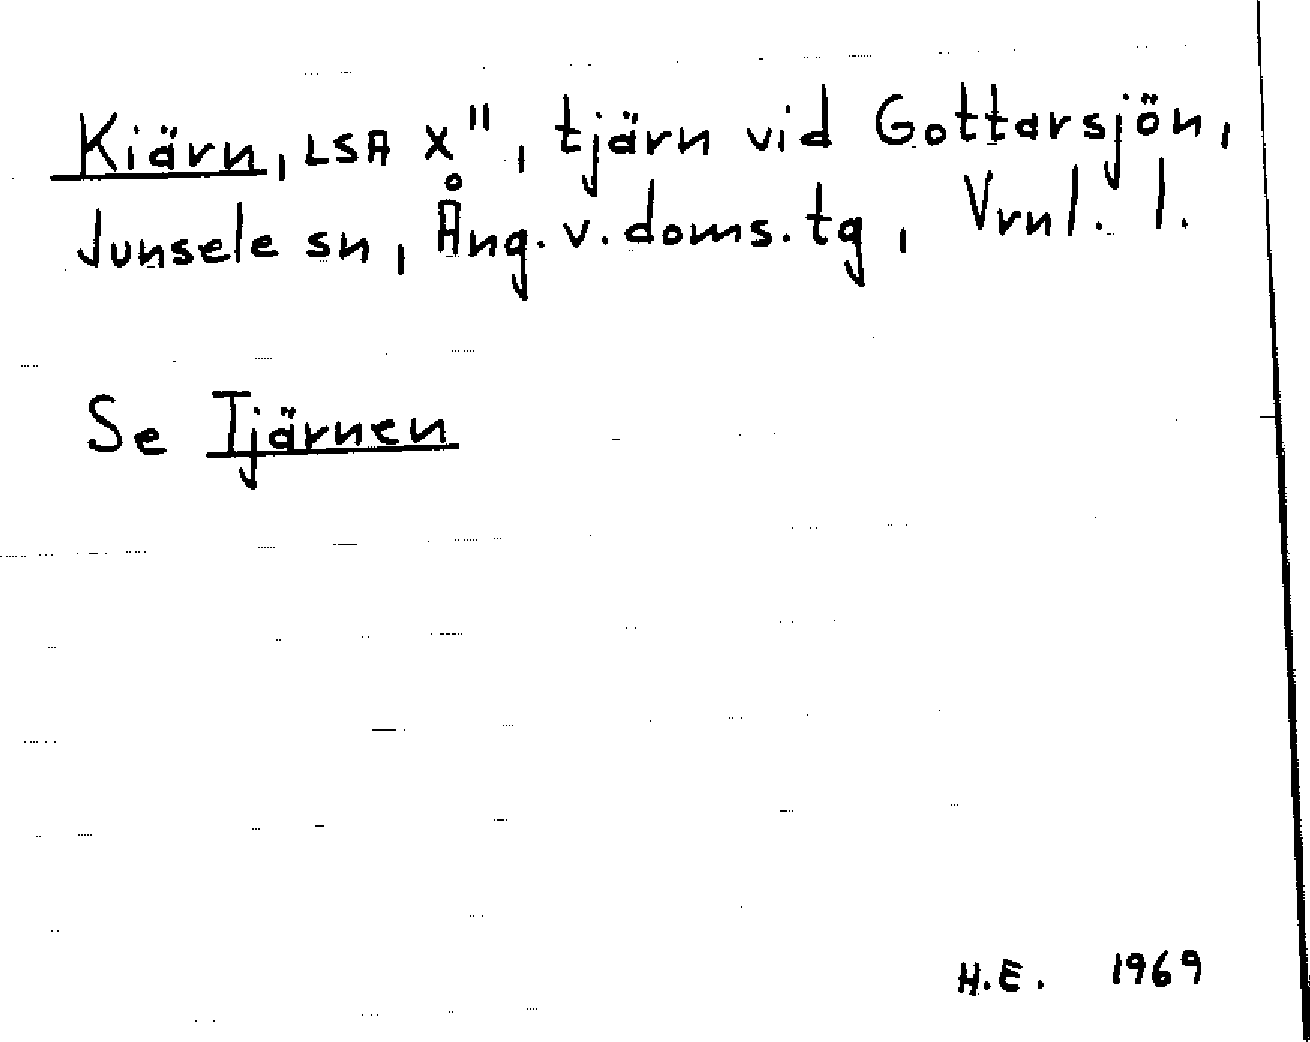 Kiärn, LSA X", tjärn vid Gottarsjön,
Junsele sn, Ång. v. doms. tg, Vrnl. l.
Se Tjärnen
H.E. 1969